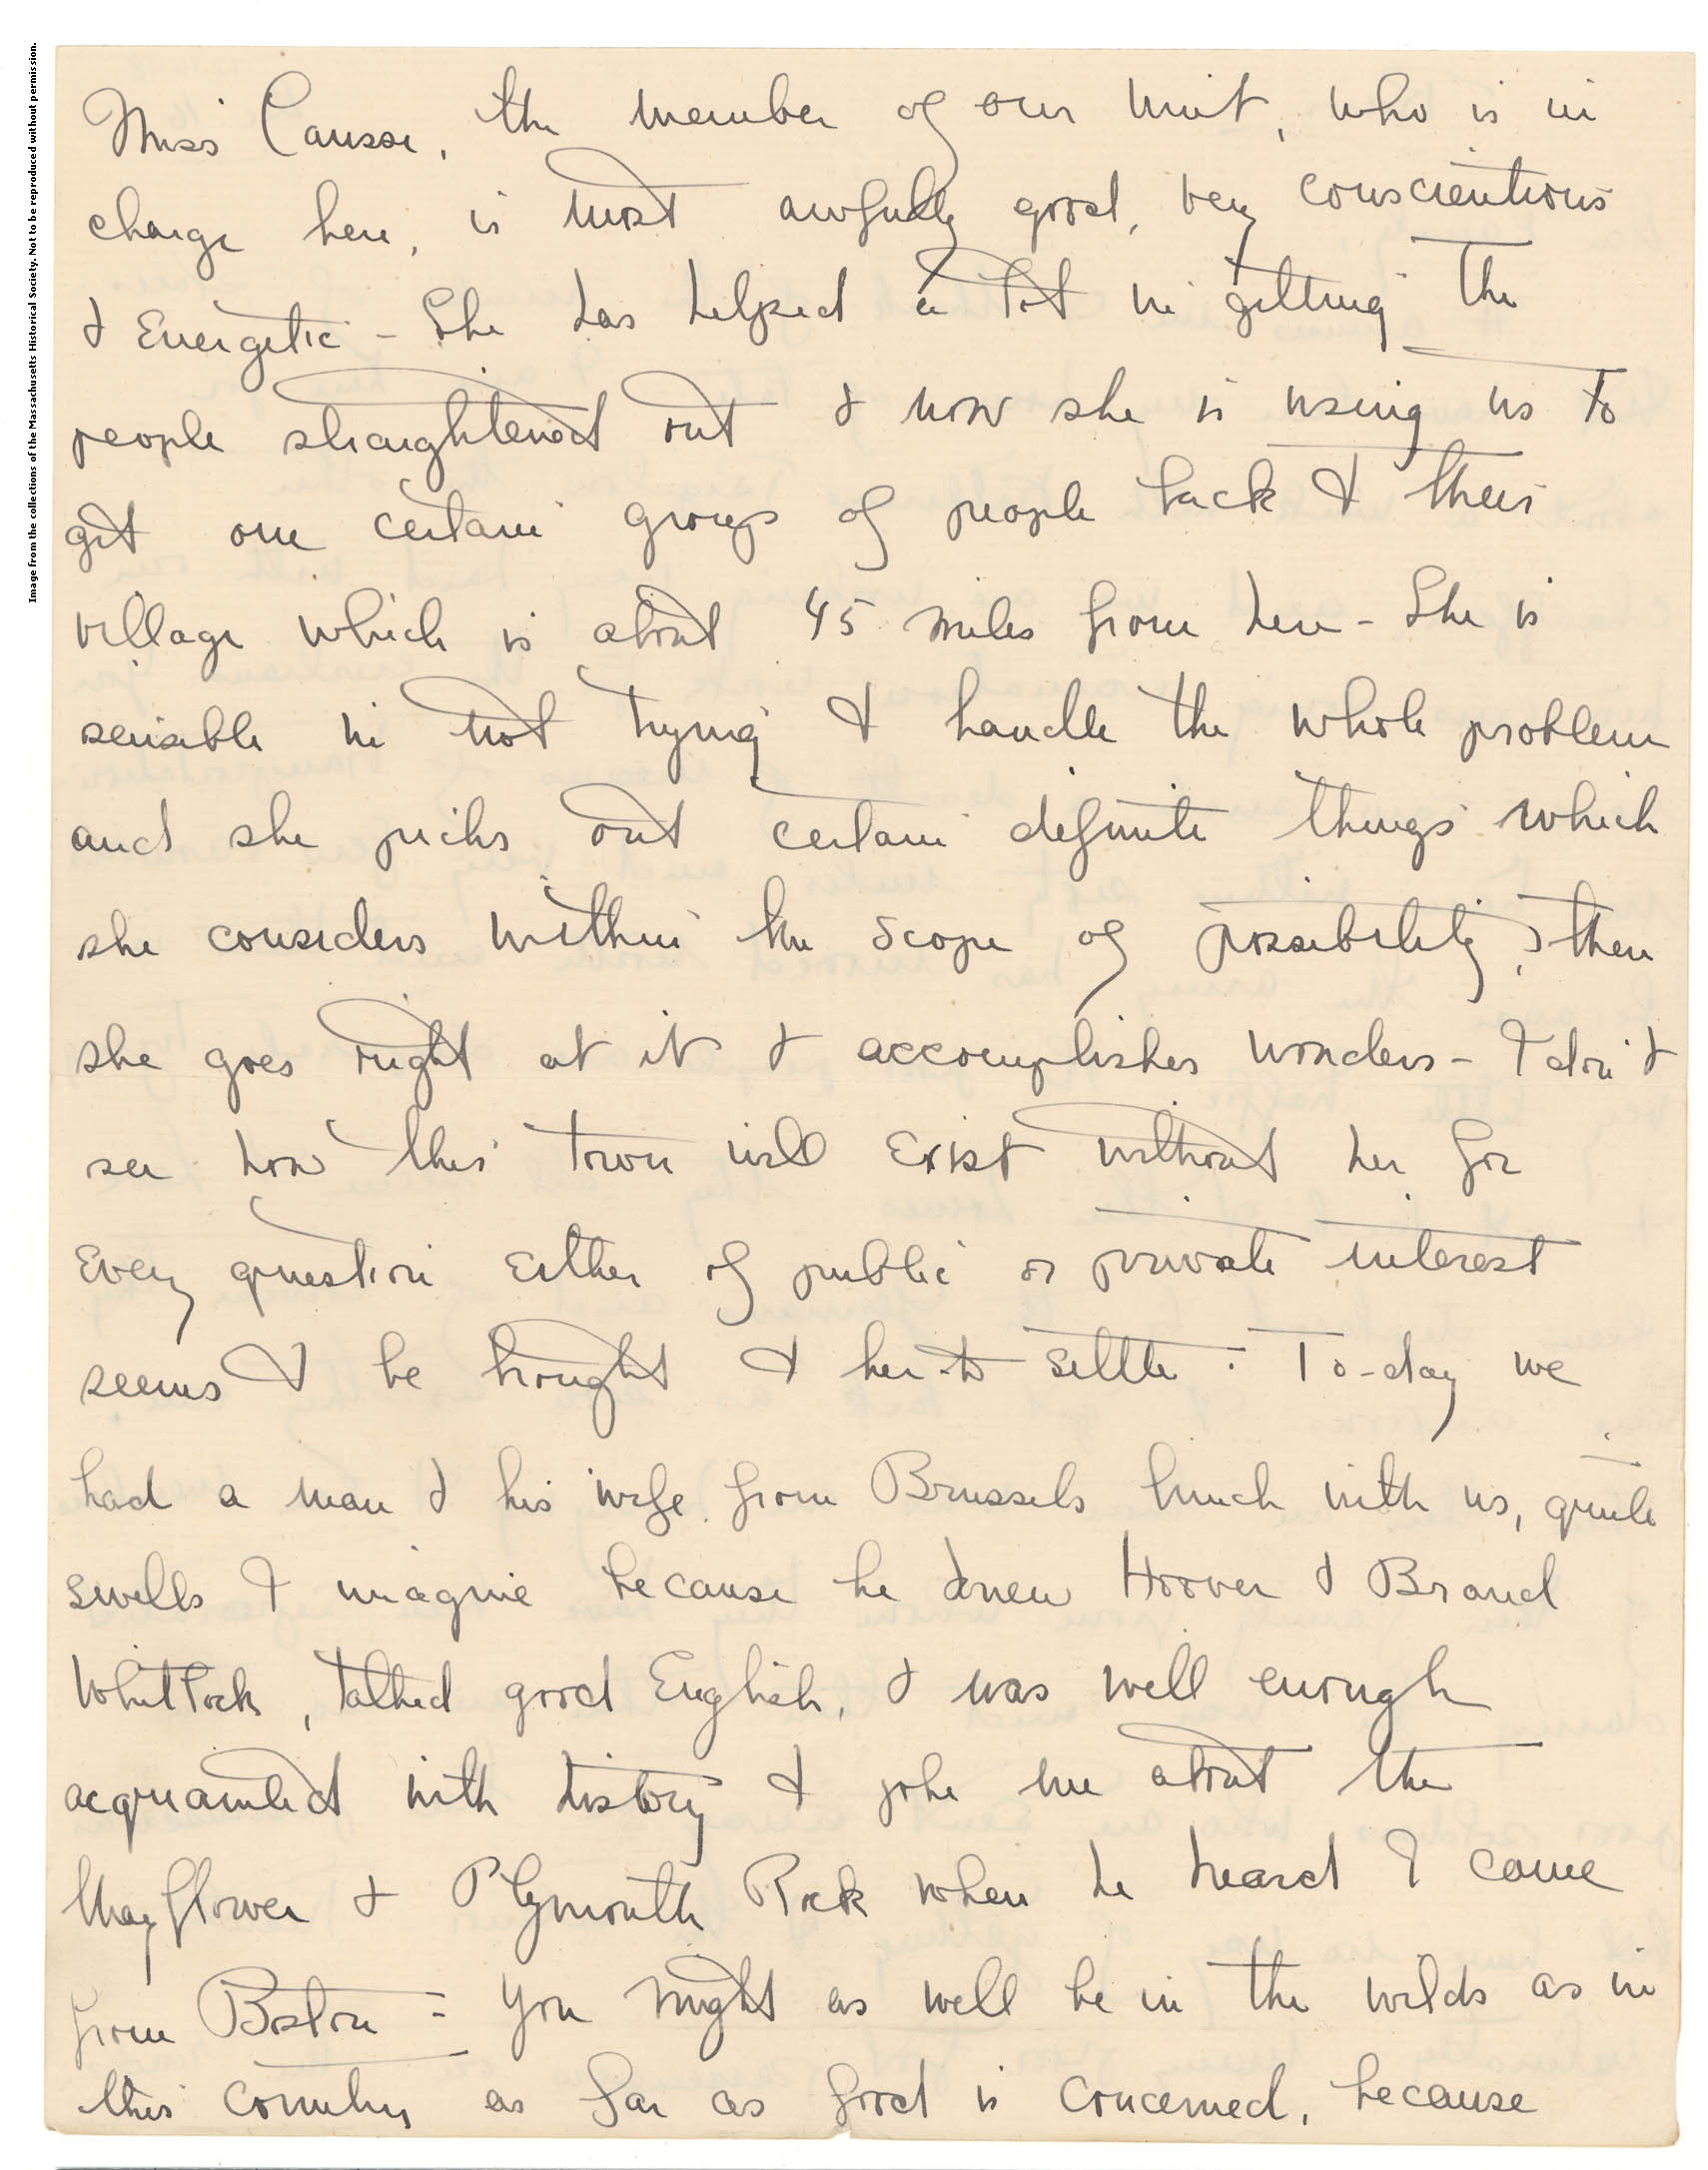 Image from the collections of the Massachusetts Historical Society. Not to be reproduced without permission.
Miss Causse, the member of our Unit, who is in
charge here, is most awfully good, very conscientious
& Energetic - She has helped a lot in getting the
people straightened out & now she is using us to
get one certain group of people back to their
village which is about 45 miles from here - She is
sensible in not trying to handle the whole problem
and she picks out certain definite things which
she considers within the scope of possibility, & then
she goes right at it & accomplishes wonders - I don't
see how this town will exist without her for
Every question either of public or private interest
seems to be brought to her to settle. To-day we
had a man & his wife from Brussels lunch with us, quite
swells I imagine because he knew Hoover & Brand
Whitlock, talked good English, & was well enough
acquainted with history to joke me about the
Mayflower & Plymouth Rock when he heard I came
from Boston - You might as well be in the wilds as in
this country as far as food is concerned, because